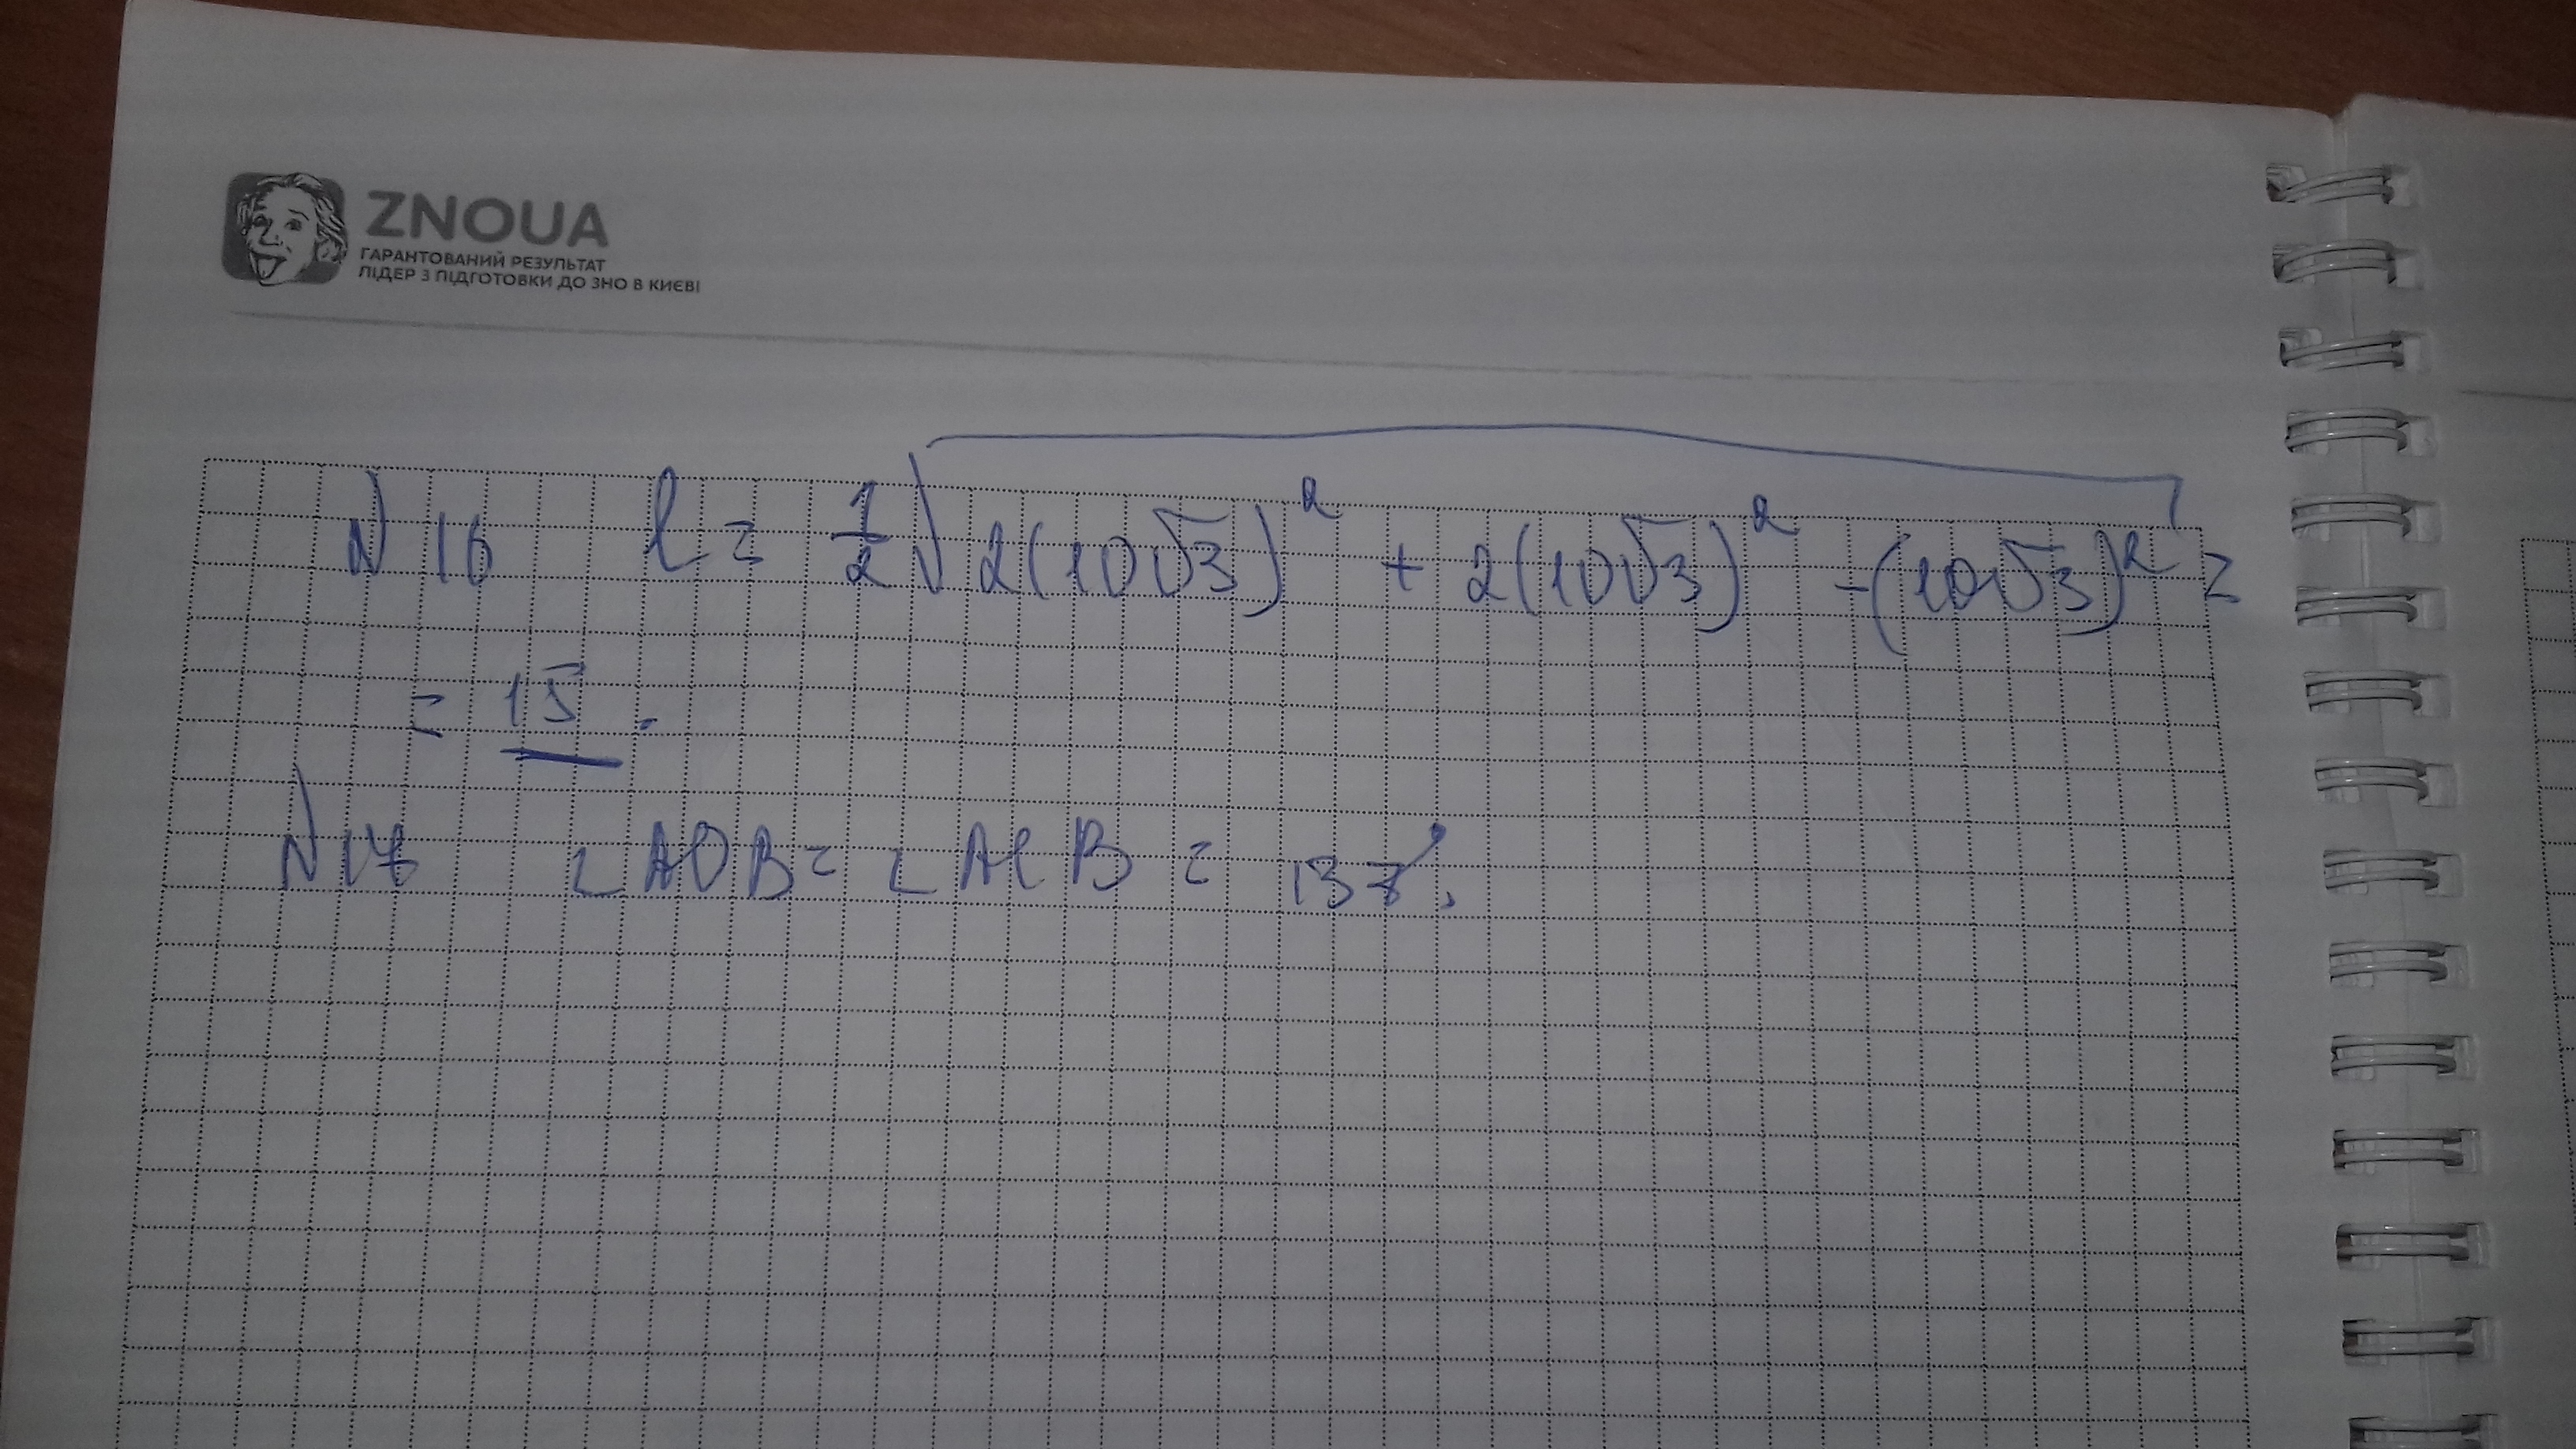 ZNOUA
ГАРАНТОВАНИЙ РЕЗУЛЬТАТ
ЛІДЕР З ПІДГОТОВКИ ДО ЗНО В КИЄВІ
N 16 l = 1/2 √(2(10√3)² + 2(10√3)² - (10√3)²) =
= 15.
N 17 ∠AOB = ∠ACB = 137°.